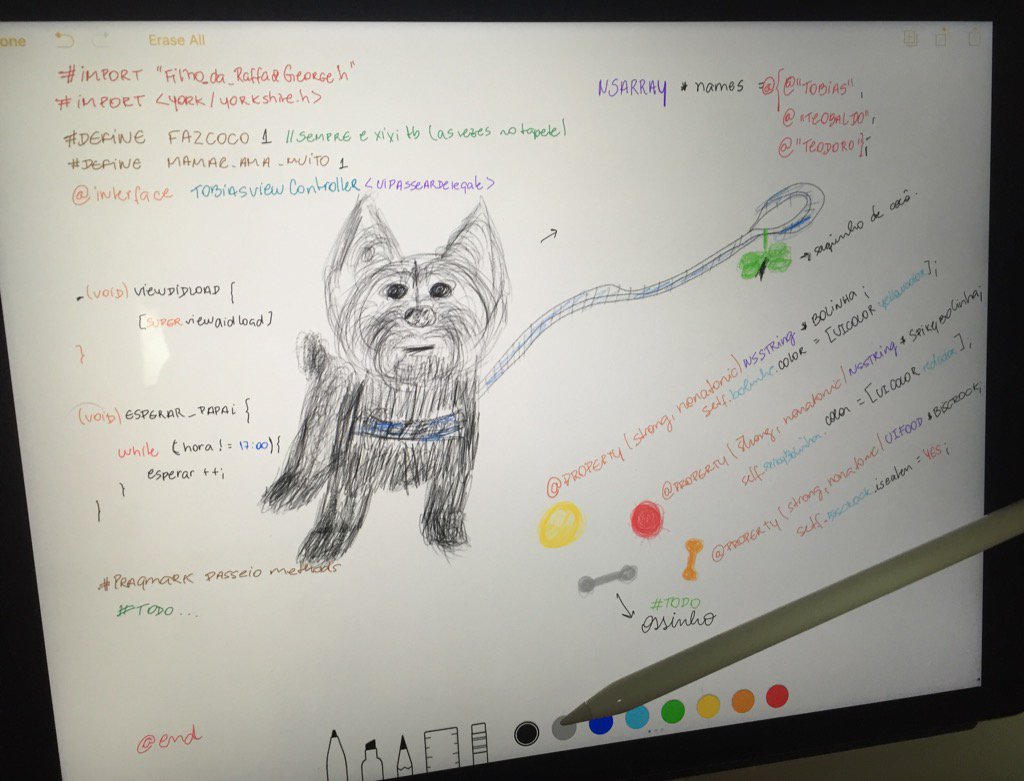 one
Erase All
#IMPORT "Filho_da_Raffa&George.h"
#IMPORT <YORK/YORKShire.h>
#DEFINE FAZCOCO 1 //SEMPRE e xixi tb (as vezes no tapete)
#DEFINE MAMAE_AMA_MUITO 1
@interface TOBIASviewController <UIPASSEARDelegate>
NSARRAY * names = @{@"TOBIAS",
@"TEOBALDO",
@"TEODORO"};
-(void) VIEWDIDLOAD {
[SUPER viewdidload]
}
(void) ESPERAR_PAPAi {
while (hora != 17:00) {
esperar ++;
}
}
#PRAGMARK PASSEIO methods
#TODO...
@end
saquinho de cocô.
@PROPERTY (strong, nonatomic) NSString * BOLINHA;
self.bolinha.color = [UICOLOR yellowcolor];
@PROPERTY (strong, nonatomic) NSSTRING * SpikyBolinha;
self.spikyBolinha.color = [UICOLOR redcolor];
@PROPERTY (strong, nonatomic) UIFOOD * BISCROCK;
self.BISCROCK.iseaten = YES;
#TODO
ossinho